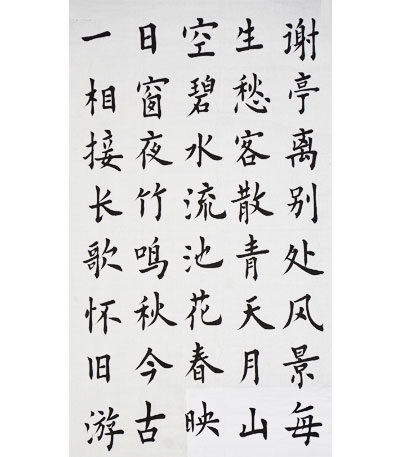 谢亭离别处风景每
生愁客散青天月山
空碧水流池花春映
日窗夜竹鸣秋今古
一相接长歌怀旧游